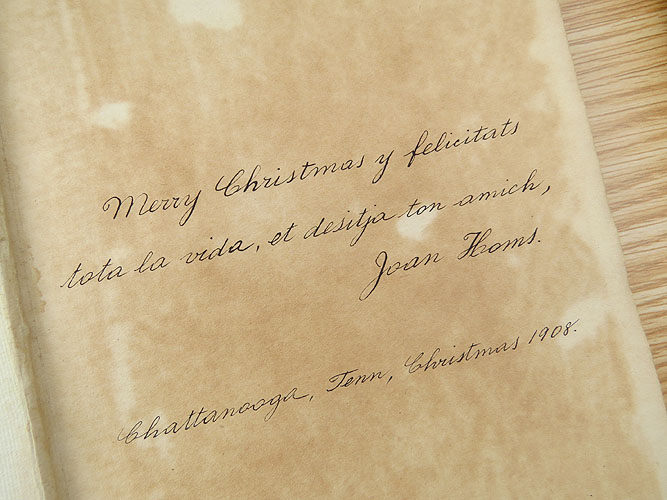 Merry Christmas y felicitats
tota la vida, et desitja ton amich,
Joan Homs.
Chattanooga, Tenn, Christmas 1908.